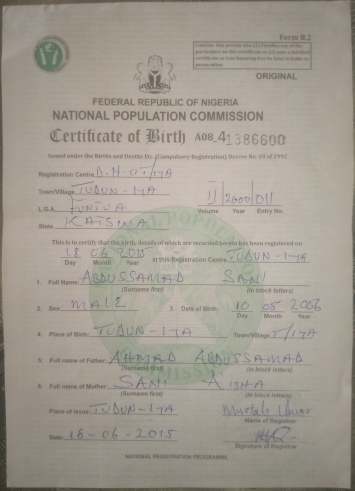 Form B.2
ORIGINAL
FEDERAL REPUBLIC OF NIGERIA
NATIONAL POPULATION COMMISSION
Certificate of Birth A08_41386600
Issued under the Births and Deaths Etc. (Compulsory Registration) Decree No. 69 of 1992
Registration Centre
Town/Village TUDUN-IYA
L.G.A. FUNTUA
State KATSINA
II 2000 011
Volume Year Entry No.
This is to certify that the birth, details of which are recorded herein has been registered on
18 06 2015 at this Registration Centre TUDUN-IYA
Day Month Year
1. Full Name: ABDUSSAMAD SANI
(Surname first) (In block letters)
2. Sex: MALE 3. Date of Birth: 10 05 2006
Day Month Year
4. Place of Birth: TUDUN-IYA Town/Village T/IYA
5. Full name of Father: AHMAD ABDUSSAMAD
(Surname first) (In block letters)
6. Full name of Mother: SANI AISHA
(Surname first) (In block letters)
Place of Issue: TUDUN-IYA
Name of Registrar
Date: 18-06-2015
Signature of Registrar
NATIONAL REGISTRATION PROGRAMME